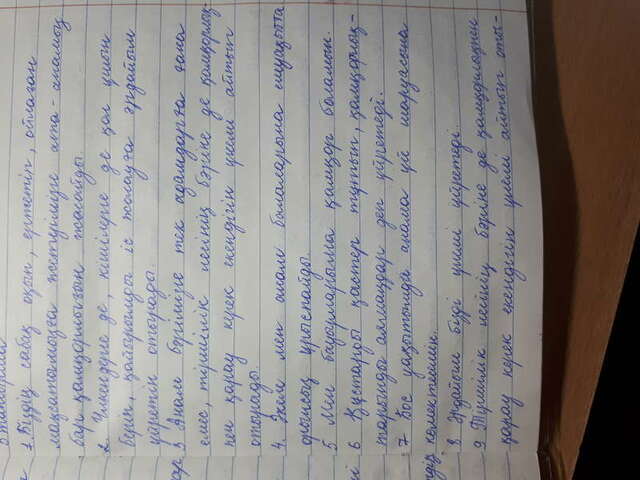 5 тапсырма
1. Біздің сабақ оқып, ертетіп, ойлаған
мақсатымызға жетуімізге ата-анамыз
бар қамқорлығын жасайды.
2. Үлкендерге де, кішілерге де қол ұшын
беріп, қайырымды іс жасауға әрдайым
үйретіп отырады.
3 Анам бәрімізге тек адамдарға ғана
емес, тіршілік иесінің бәріне де қамқорлық-
пен қарау керек екендігін үнемі айтып
отырады.
4. Әкем мен анам балаларына ешуақытта
орынсыз ұрыспайды.
5 Мен бауырларыма қамқор боламын.
6 Құстарды қастер тұтып, қамқорлық-
тарыңды аямаңдар деп үйретеді.
7 Бос уақытымда анама үй шаруасына
көмектесемін.
8 Әрдайым бізді үнемі үйретеді.
9 Тіршілік иесінің бәріне де қамқорлықпен
қарау керек екендігін үнемі айтып оты-